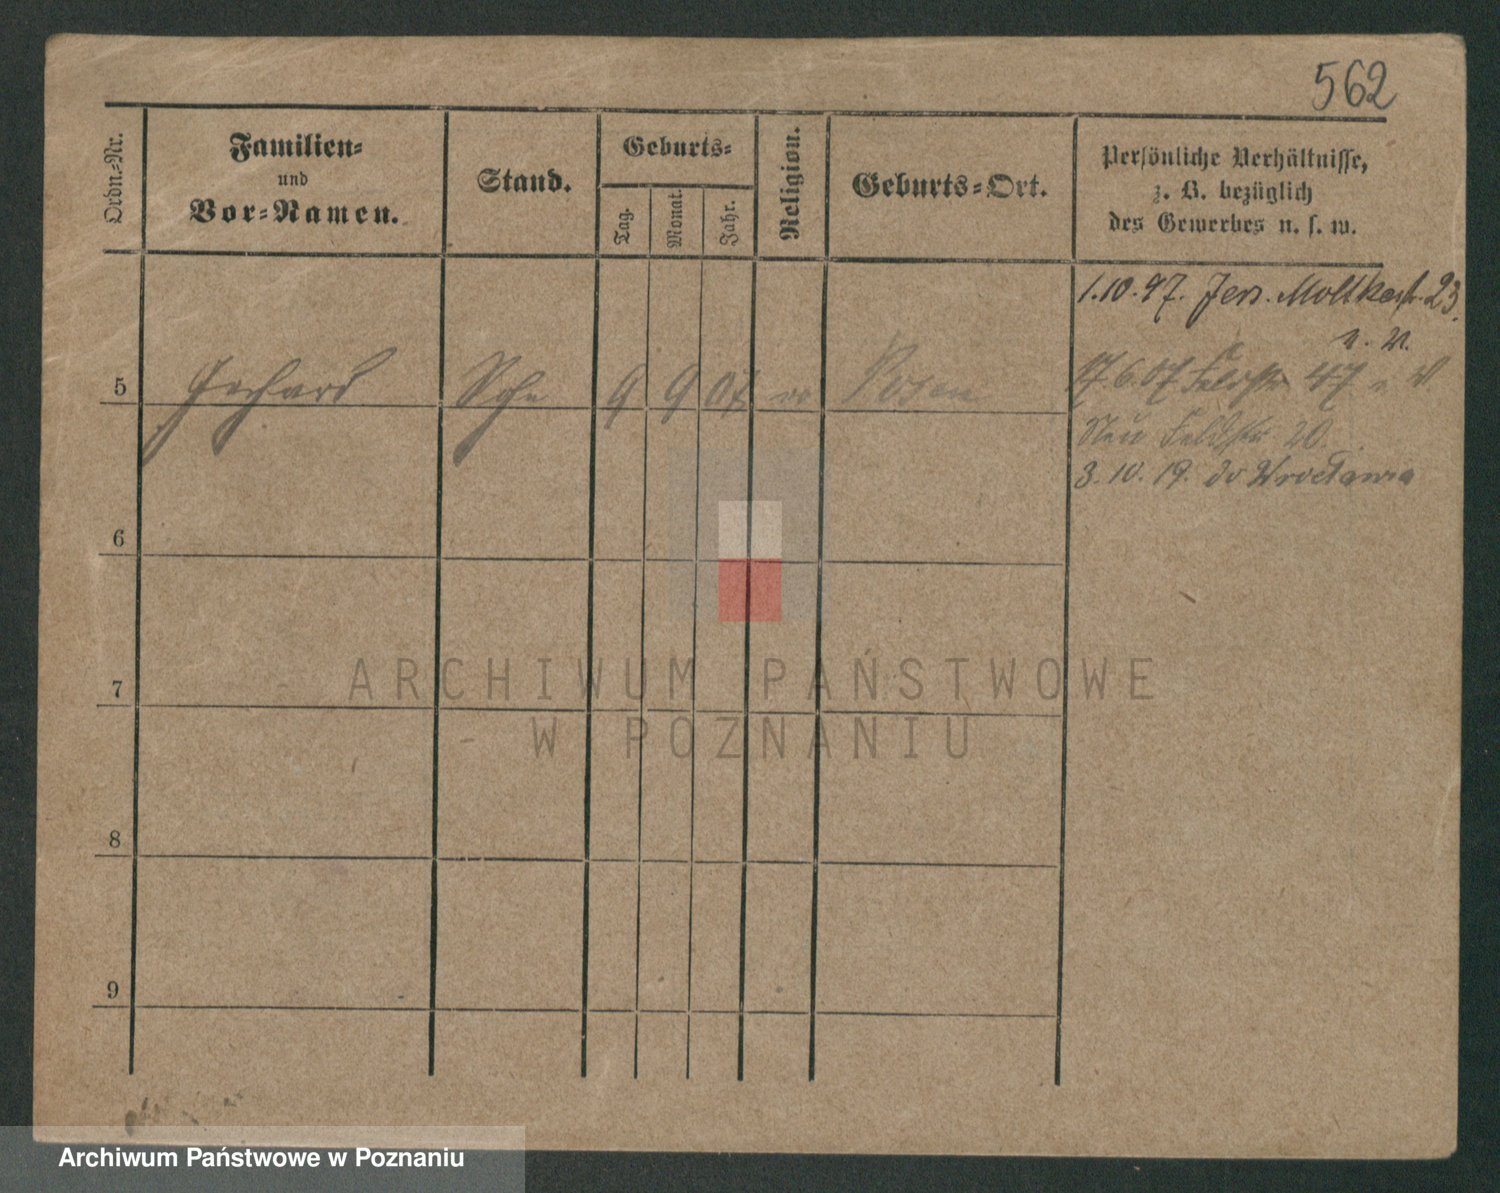 562
Ordn.-Nr.
Familien-
und
Vor-Namen.
Stand.
Geburts-
Tag.
Monat.
Jahr.
Religion.
Geburts-Ort.
Persönliche Verhältnisse,
z. B. bezüglich
des Gewerbes u. s. w.
1.10.97. Jers. Moltkestr. 23.
5 Gerhard 9 9 07 Posen
17.6.07 Feldstr 47
Neu Feldstr 20.
3.10.19. do Wrocławia
6
7
8
9
ARCHIWUM PAŃSTWOWE
W POZNANIU
Archiwum Państwowe w Poznaniu